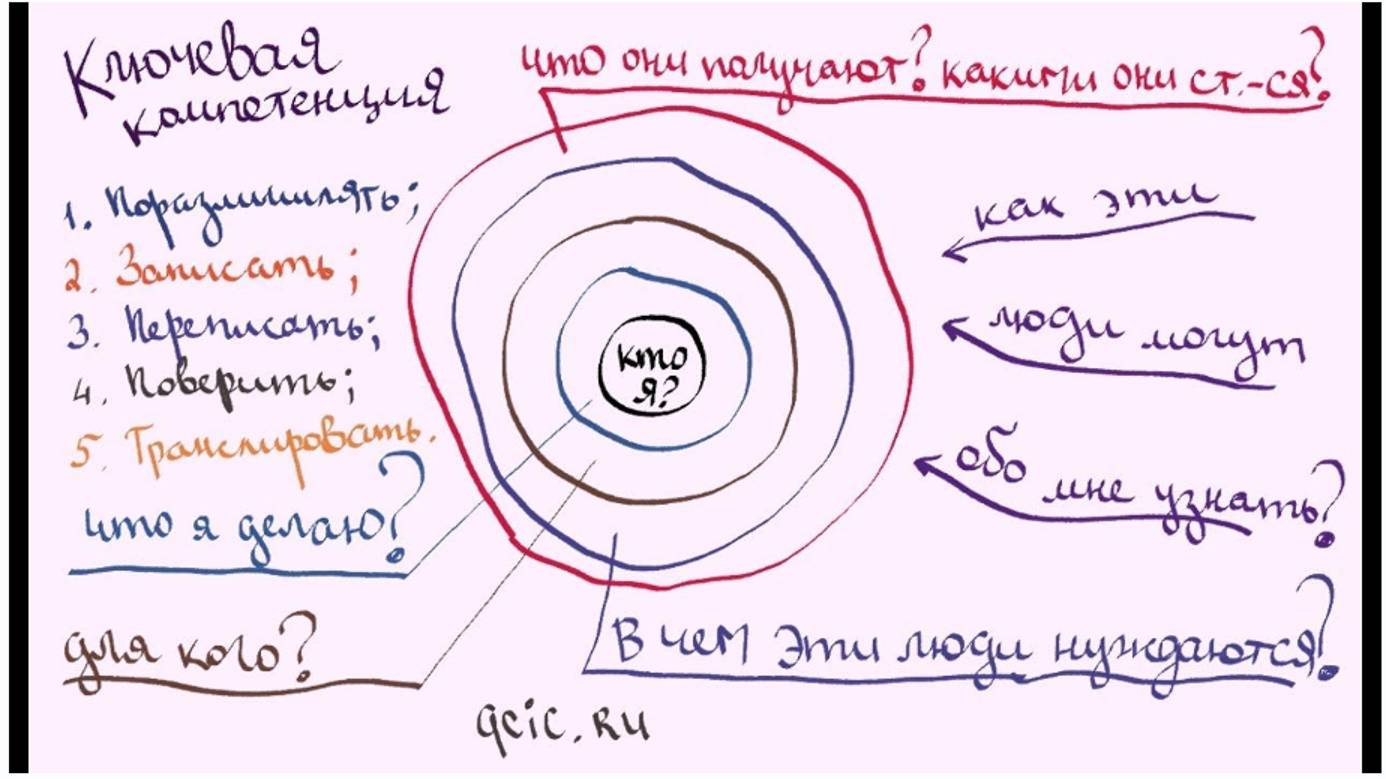 Ключевая
компетенция
что они получают? какими они ст.-ся?
1. Поразмышлять;
2. Записать;
3. Переписать;
4. Поверить;
5. Транслировать.
кто
я?
как эти
люди могут
обо мне узнать?
что я делаю?
для кого?
В чем эти люди нуждаются?
qcic.ru